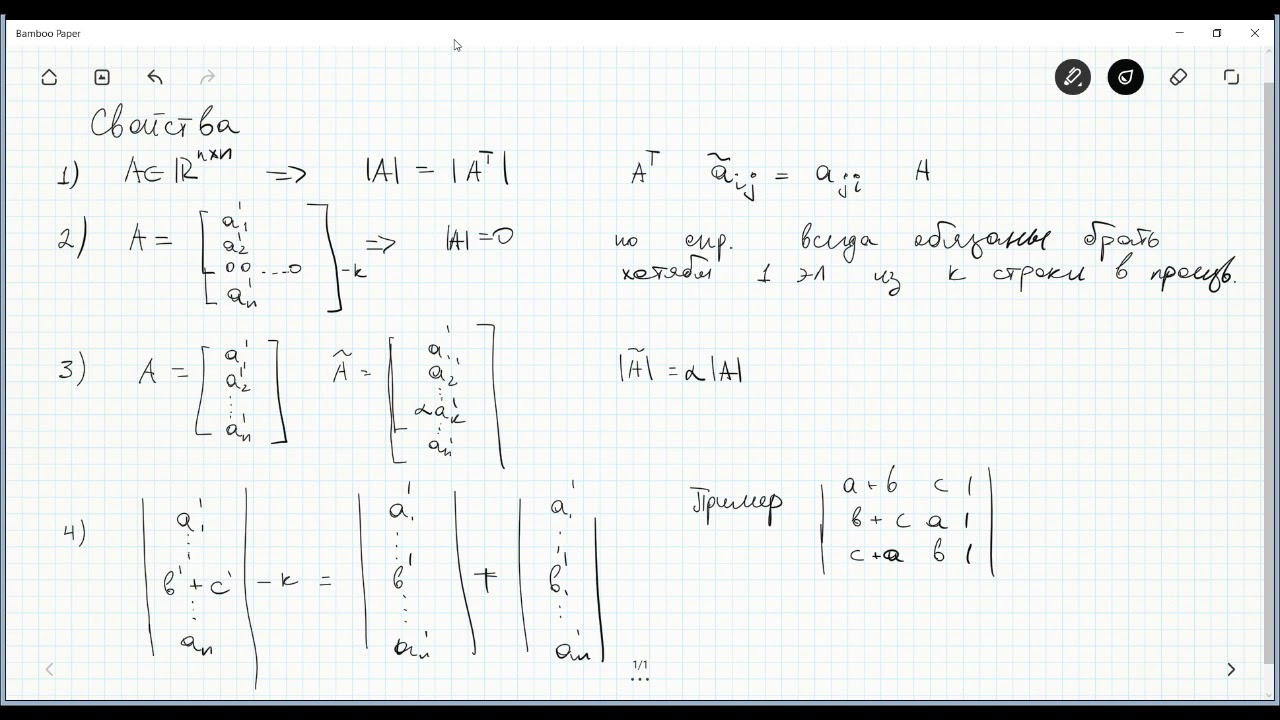 Bamboo Paper
Свойства
1) A∈ℝⁿˣⁿ => |A| = |Aᵀ| Aᵀ ã_ij = a_ji A
2) A = [a₁' a₂' 00...0 aₙ'] -к => |A| = 0 по опр. всегда обязаны брать
хотябы 1 эл из к строки в произв.
3) A = [a₁' a₂' ⋮ aₙ'] Ã = [a₁' a₂' ⋮ αaₖ' ⋮ aₙ'] |Ã| = α|A|
4) |a₁' ⋮ в'+с' ⋮ aₙ'| -к = |a₁' ⋮ в' ⋮ aₙ'| + |a₁' ⋮ в' ⋮ aₙ'|
Пример
a+в c 1
в+c a 1
c+a в 1
1/1